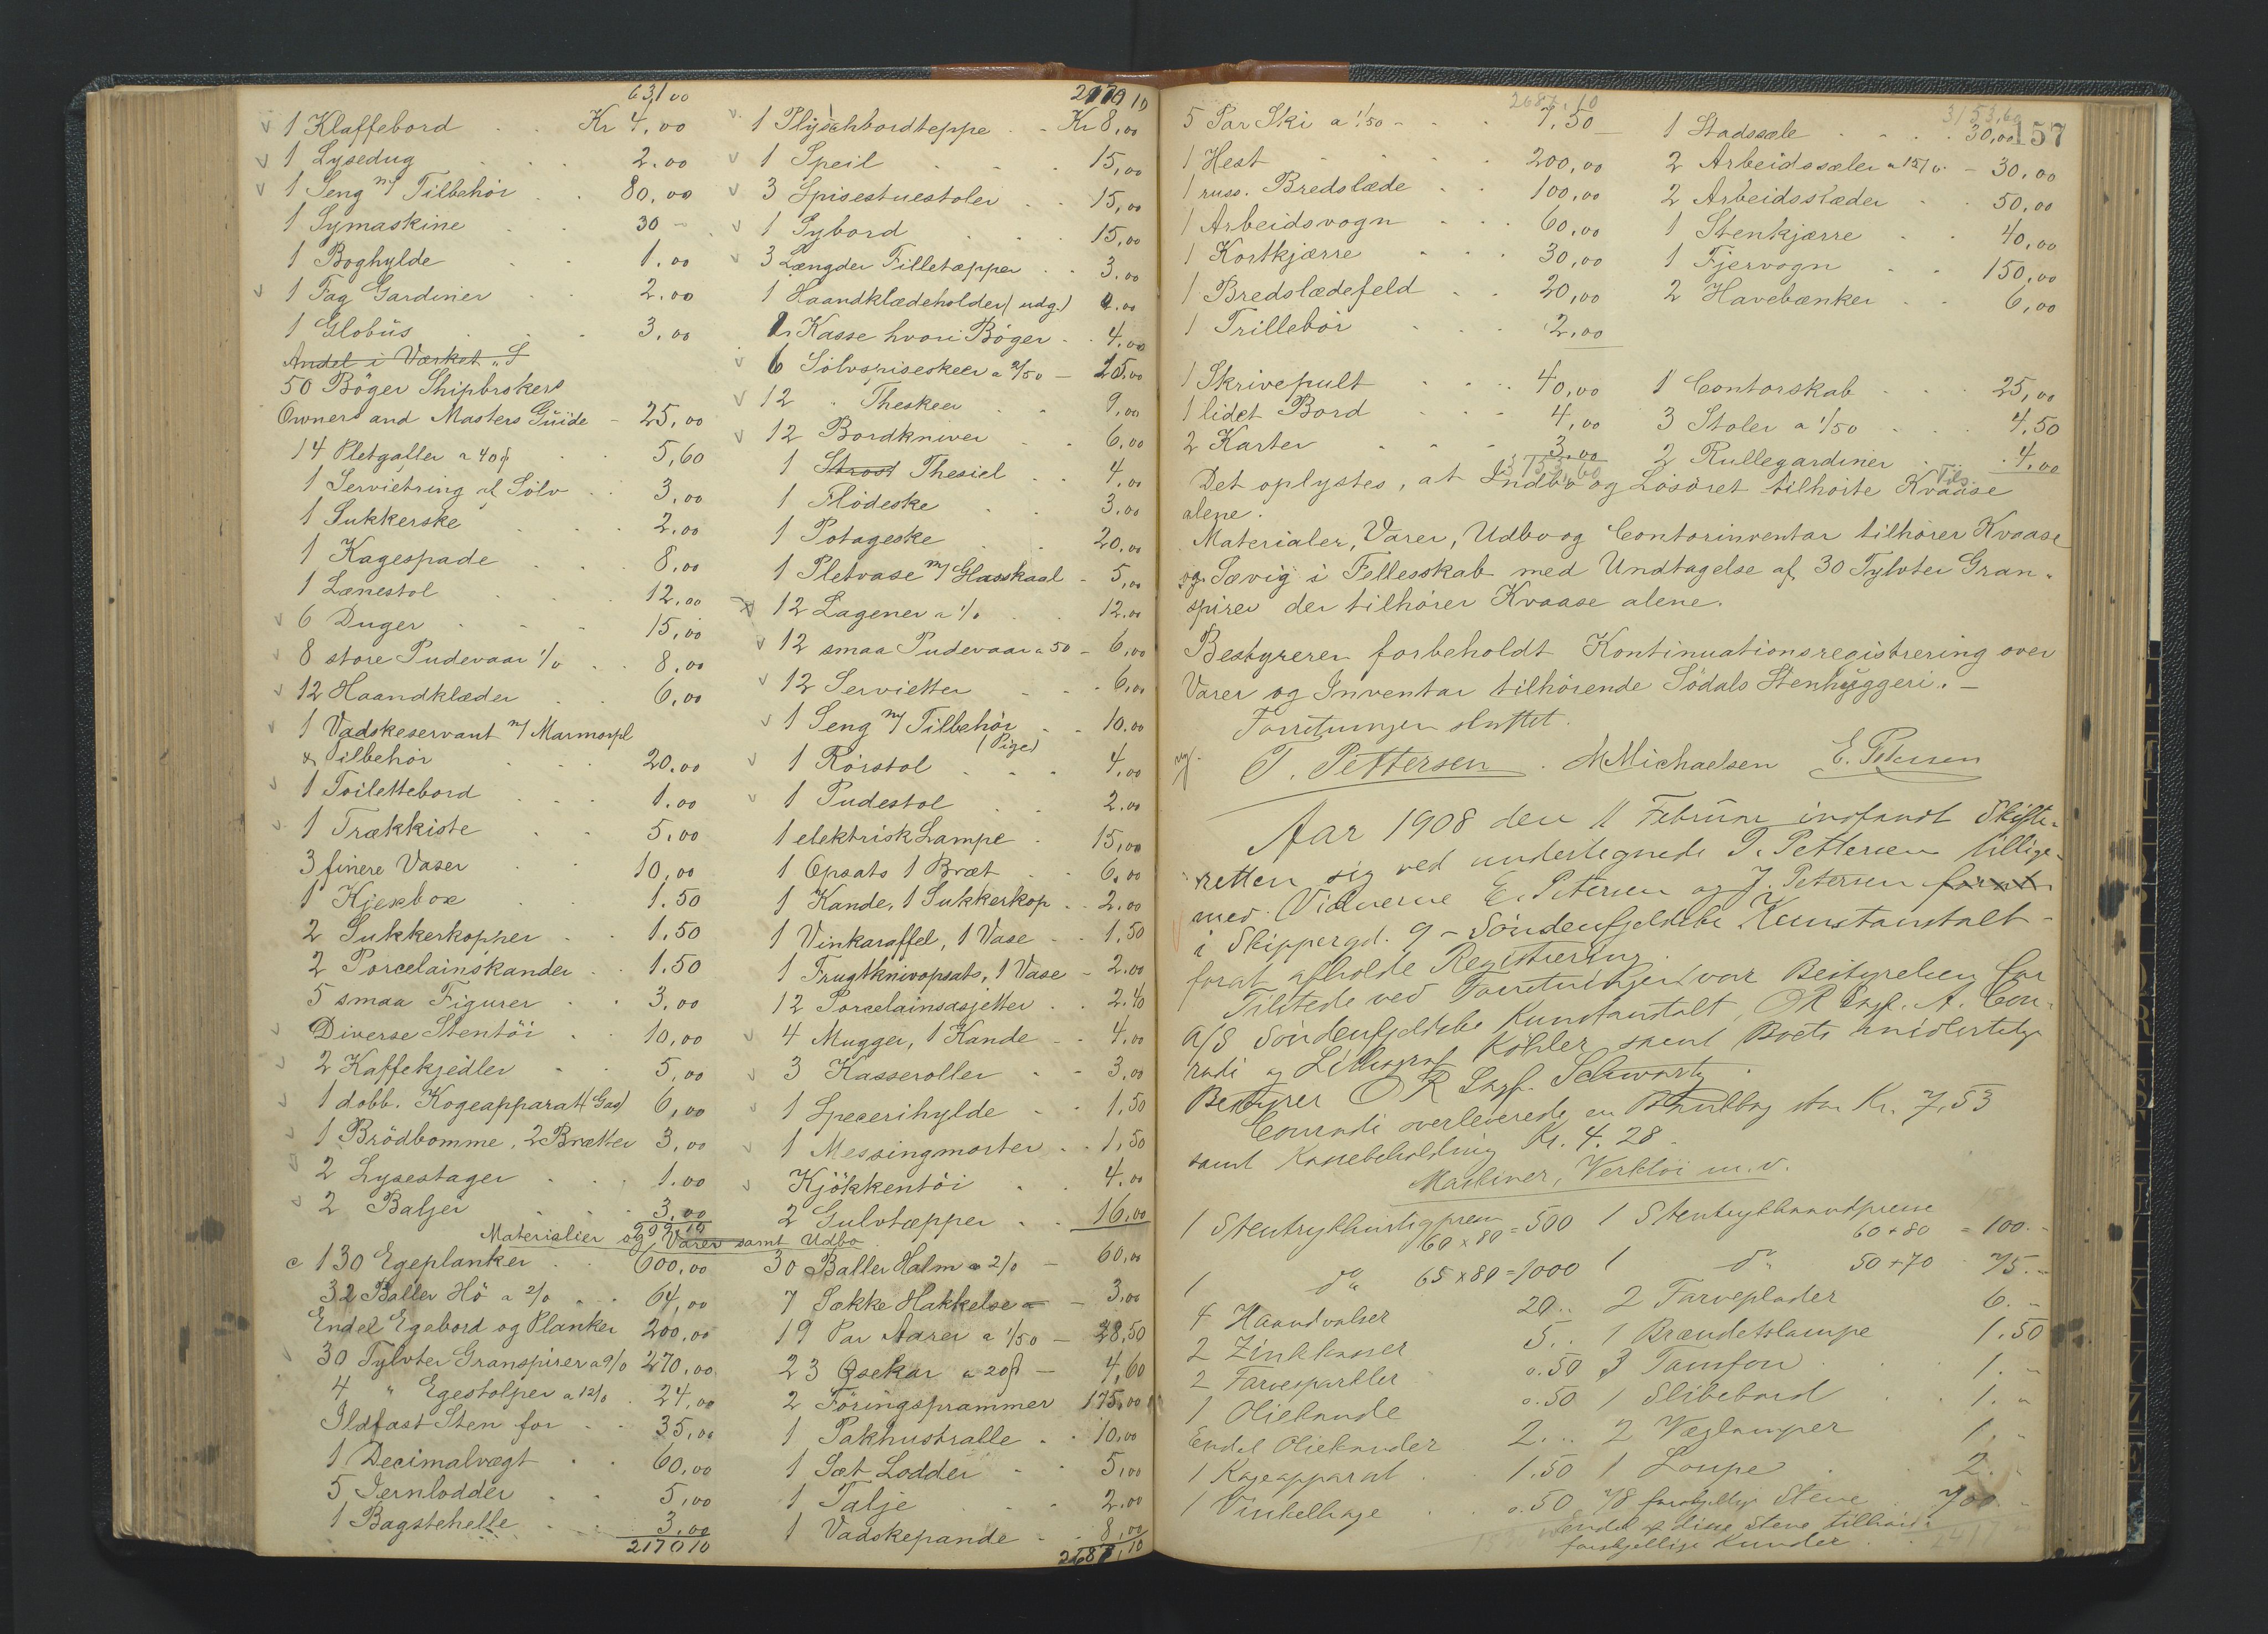 631 00
1 Klaffebord Kr 4,00
1 Lysedug 2.00
1 Seng m/ Tilbehör 80,00
1 Symaskine 30 -
1 Boghylde 1.00
1 Fag Gardiner 2.00
1 Globüs 3,00
Andel i Værket "S
50 Böger Shipbrokers
Owners and Masters Guide - 25,00
14 Pletgafler a 40 5,60
1 Servietring af Sölv 3,00
1 Sukkerske 2.00
1 Kagespade 8,00
1 Lænestol 12,00
6 Duger 15,00
8 store Pudevaar 1/0 8,00
12 Haandklæder 6,00
1 Vadskeservant m/ Marmorpl
& Tilbehör 20,00
1 Toilettebord 1.00
1 Trækkiste 5,00
3 finere Vaser 10,00
1 Kjexbox 1.50
2 Sukkerkopper 1.50
2 Porcelainskander 1.50
5 smaa Figurer 3,00
Diverse Stentöi 10,00
2 Kaffekjedler 5,00
1 dobb. Kogeapparat (Gas) 6,00
1 Brödbomme, 2 Brætter 3,00
2 Lysestager 1.00
2 Baljer 3,00
2170 10
1 Plyschbordteppe Kr 8,00
1 Speil 15,00
3 Spisestuestoler 15,00
1 Sybord 15,00
3 Længder Filletæpper 3,00
1 Haandklædeholder (udg.)
1 Kasse hvori Böger 4,00
6 Sölvspiseskeer a 2/50
12 " Theskeer 9,00
12 Bordkniver 6,00
1 Strost Thesiel 4,00
1 Flödeske 3,00
1 Potageske 20,00
1 Pletvase m/ Glasskaal 5,00
12 Lagener a 1/0 12,00
12 smaa Pudevaar a 50 - 6,00
12 Servietter 6,00
1 Seng m/ Tilbehör 10.00
(Pige)
1 Rörstol 4,00
1 Pudestol 2.00
1 elektrisk Lampe 15,00
1 Opsats 1 Bræt 6,00
1 Kande, 1 Sukkerkop 2.00
1 Vinkaraffel, 1 Vase 1,50
1 Frugtknivopsats, 1 Vase 2.00
12 Porcelainsasjetter 2.40
4 Mugger, 1 Kande 4,00
3 Kasseroller 3,00
1 Specerihylde 1,50
1 Messingmorter 1,50
Kjökkentöi 4.00
2 Gulvtæpper 16,00
Materialier og Varer samt Udbo
130 Egeplanker 600,00
32 Baller Hö a 2/0 64,00
Endel Egebord og Planker 200,00
30 Tylvter Granspirer a 9/0 270,00
4 " Egestolper a 12/0 24,00
Ildfast Sten for 35,00
1 Decimalvægt 60,00
5 Jernlodder 5,00
1 Bagstehelle 3,00
2170 10
30 Baller Halm a 2/0 - 60,00
7 Sække Hakkelse - 3,00
19 Par Aarer a 1/50 - 28,50
23 Øsekar a 20 - 4,60
2 Föringsprammer 175,00
1 Pakhustralle 10,00
1 Sæt Lodder 5,00
1 Talje 2.00
1 Vadskepande 8,00
2687,10
2687,10
5 Par Ski a 1/50 7,50
1 Hest 200,00
1 russ. Bredslæde 100,00
1 Arbeidsvogn 60,00
1 Kortkjærre 30,00
1 Bredslædefeld 20,00
1 Trillebör 2,00
1 Skrivepult 40,00
1 lidet Bord 4,00
2 Karter 3,00
3153,60
3153,60
157
1 Stadssæle 30,00
2 Arbeidssæler a 15/0 - 30,00
2 Arbeidsslæder 50,00
1 Stenkjærre 40,00
1 Fjervogn 150,00
2 Havebænker 6,00
1 Contorskab 25,00
3 Stoler a 1/50 4,50
2 Rullegardiner 4,00
Det oplystes, at Indbo og Lösöret tilhörte Kvaase
alene.
Materialer, Varer, Udbo og Contorinventar tilhörer Kvaase
og Sævig i Fellesskab med Undtagelse af 30 Tylvter Gran-
spirer der tilhörer Kvaase alene.
Bestyrerer forbeholdt Kontinuationsregistrering over
Varer og Inventar tilhörende Södals Stenhuggeri. -
Forretningen sluttet.
T. Pettersen. M Michaelsen E. Petersen
Aar 1908 den 11 Februar indfandt Skifte-
retten sig ved undertegnede T. Pettersen tillige-
med Vidnerne E. Petersen og J. Petersen
i Skippergd. 9 - Söndenfjeldske Kunstanstalt -
forat afholde Registrering.
Tilstede ved Forretningen var Bestyrelsen for
A/S Söndenfjeldske Kunstanstalt, OR Sagf. A. Con-
radi og Lithograf Köhler samt Boets midlertidige
Bestyrer O R Sagf. Schwartz.
Conradi overleverede en Bankbog stor Kr. 7,53
samt Kassebeholdning Kr. 4.28 -
Maskiner, Verktöi m.v.
1 Stentrykhurtigpresse 60 x 80 = 500
1 do 65 x 80 = 1000
4 Haandvalser 20..
2 Zinkkasser 5..
2 Farvespartler 0.50
1 Oliekande 0.50
Endel Oliekander 2...
1 Kogeapparat 1.50
1 Vinkelhage 0.50
1 Stentrykhaandpresse 60 + 80 = 100.-
1 do 50 + 70 75.-
2 Farveplader 6.-
1 Brændetslampe 1.50
3 1.-
1 Slibebord 1.-
2 Væglamper 1.-
1 Loupe 2.-
78 forskjellige Stene 700.-
Endel af disse Stene tilhörer
forskjellige Kunder.